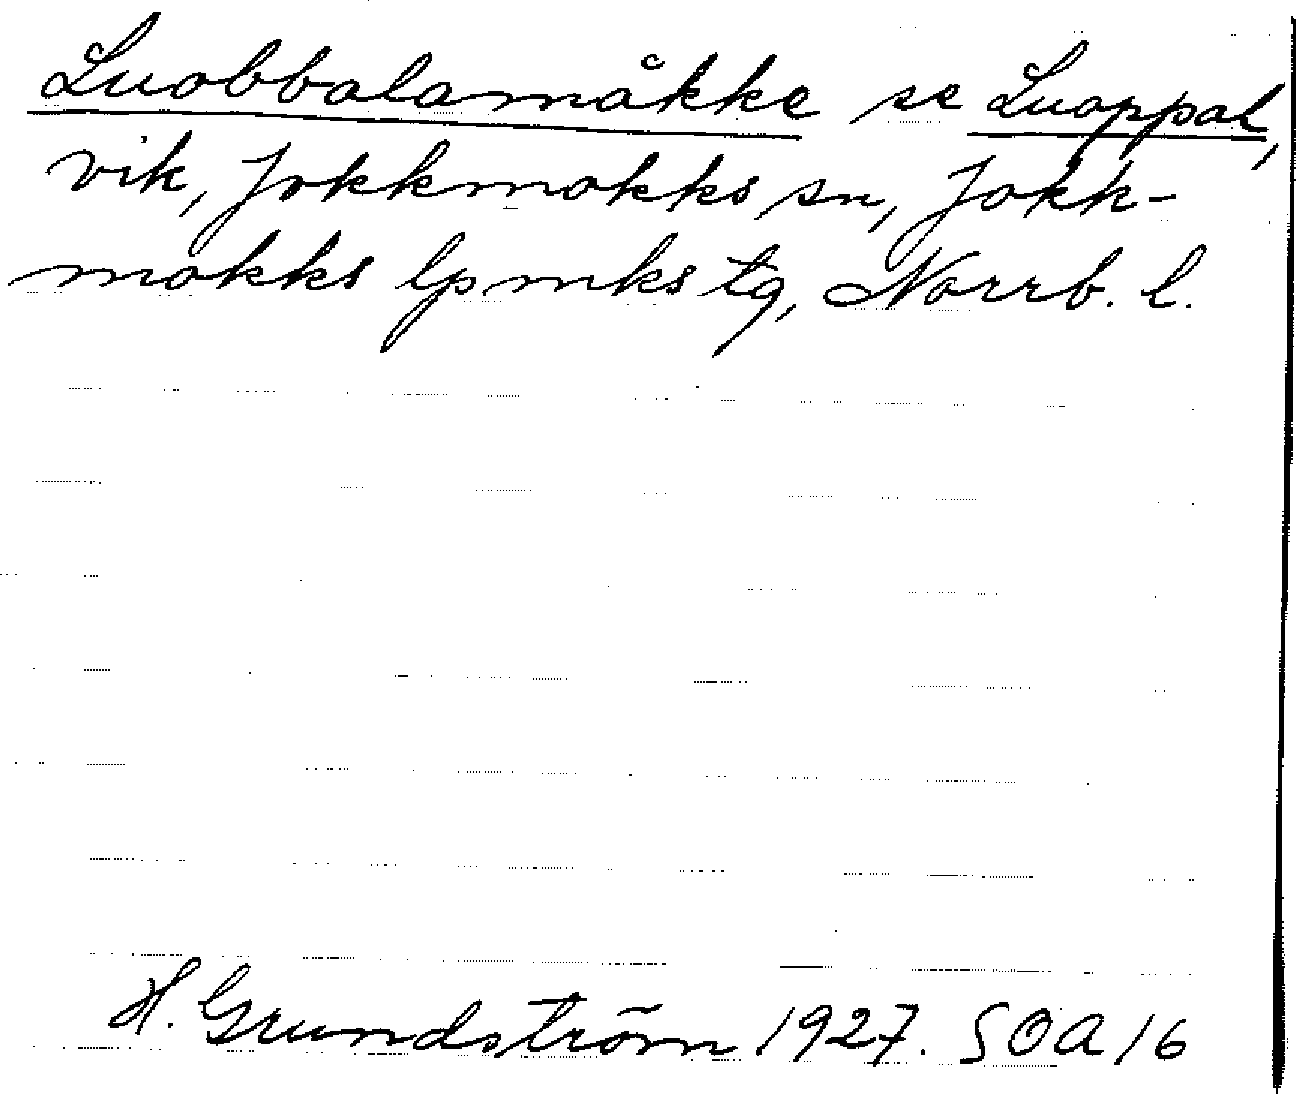 Luobbalamåkke se Luoppal,
vik, Jokkmokks sn, Jokk-
mokks lpmks tg, Norrb. l.
H. Grundström 1927. SOA 16